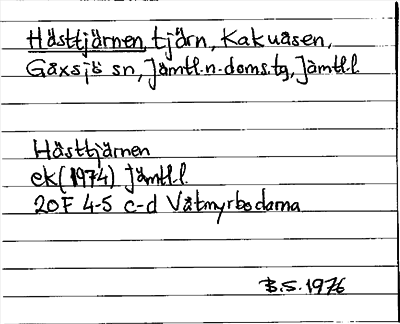 Hästtjärnen, tjärn, Kakuåsen,
Gåxsjö sn, Jämtl.n.doms.tg, Jämtl.l.
Hästtjärnen
ek (1974) Jämtl.l.
20F 4-5 c-d Våtmyrbodarna
B.S. 1976